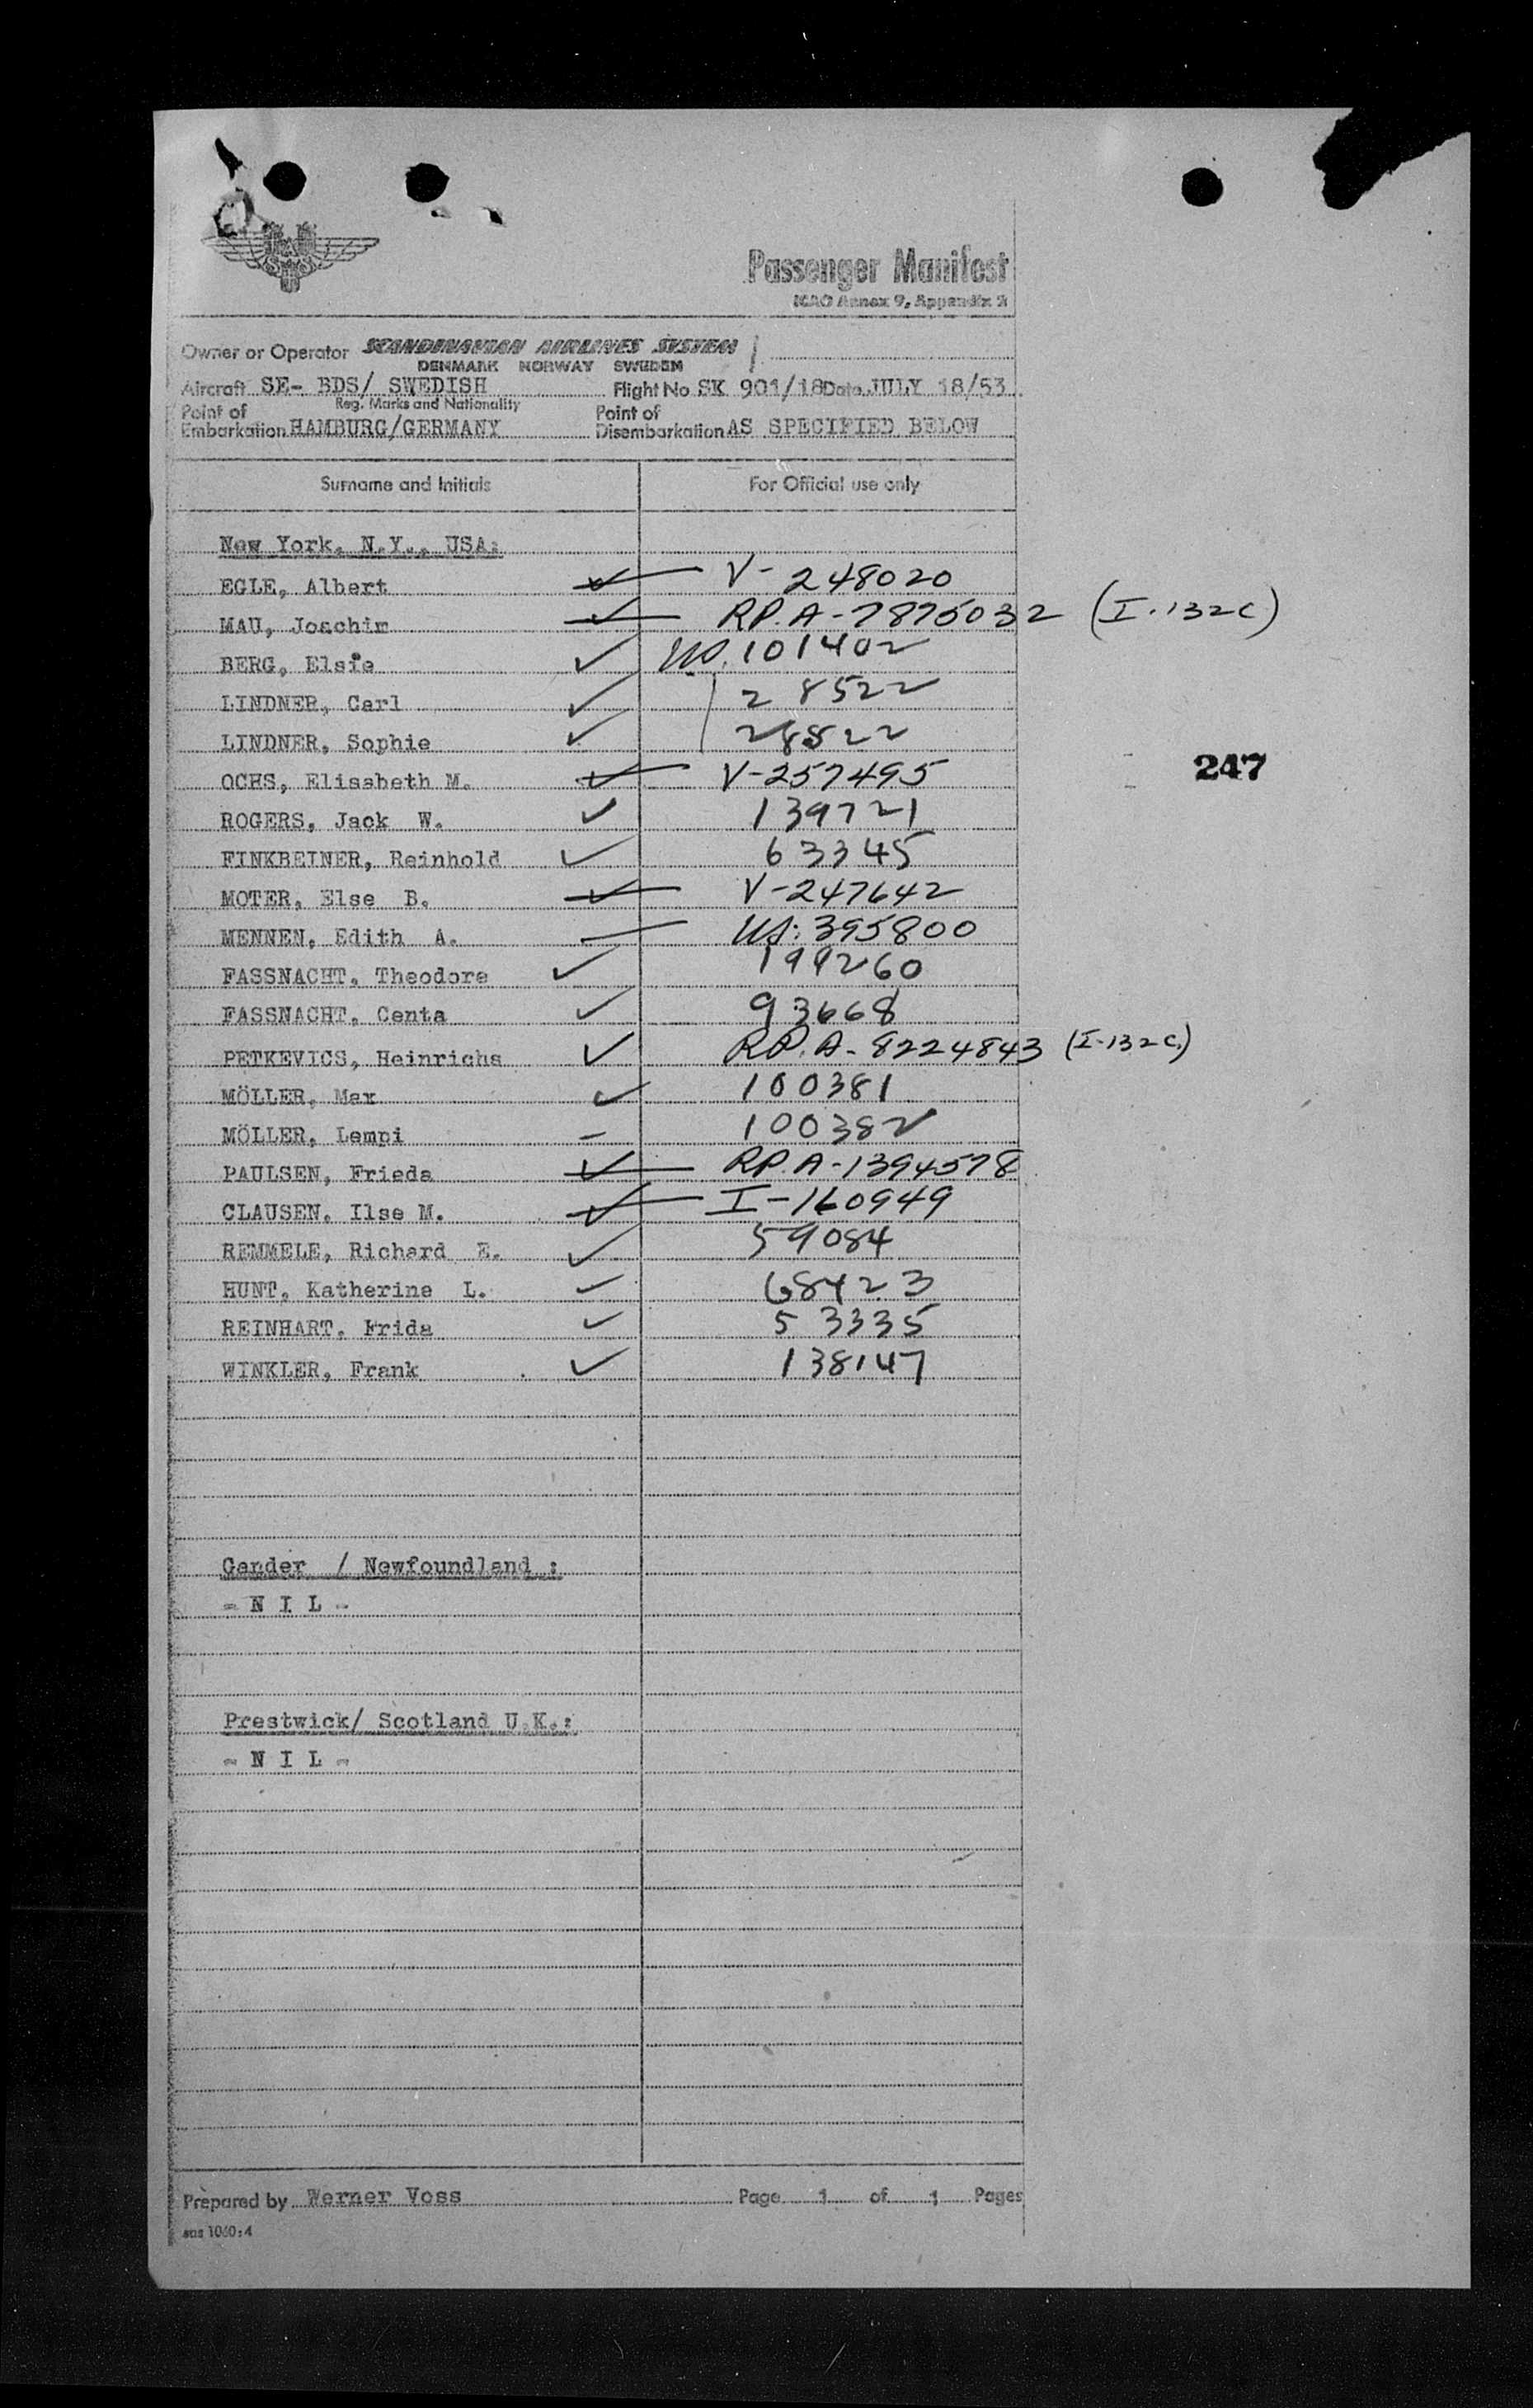 SAS
Passenger Manifest
ICAO Annex 9, Appendix 2
Owner or Operator SCANDINAVIAN AIRLINES SYSTEM
DENMARK NORWAY SWEDEN
Aircraft SE- BDS/ SWEDISH Flight No. SK 901/18 Date JULY 18/53
Reg. Marks and Nationality
Point of Embarkation HAMBURG/GERMANY Point of Disembarkation AS SPECIFIED BELOW
Surname and Initials For Official use only
New York, N.Y., USA:
EGLE, Albert V- 248020
MAU, Joachim RP.A-7875032 (I-132C)
BERG, Elsie US.101402
LINDNER, Carl 28522
LINDNER, Sophie 28522
OCHS, Elisabeth M. V-257495
247
ROGERS, Jack W. 139721
FINKBEINER, Reinhold 63345
MOTER, Else B. V-247642
MENNEN, Edith A. US:395800
FASSNACHT, Theodore 199260
FASSNACHT, Centa 93668
PETKEVICS, Heinrichs RP.A-8224843 (I-132C.)
MÖLLER, Max 100381
MÖLLER, Lempi 100382
PAULSEN, Frieda RP.A-1394578
CLAUSEN, Ilse M. I-160949
REMMELE, Richard E. 59084
HUNT, Katherine L. 68423
REINHART, Frida 53335
WINKLER, Frank 138147
Gander / Newfoundland :
- N I L -
Prestwick/ Scotland U.K.:
- N I L -
Prepared by Werner Voss Page 1 of 1 Pages
sas 1060:4